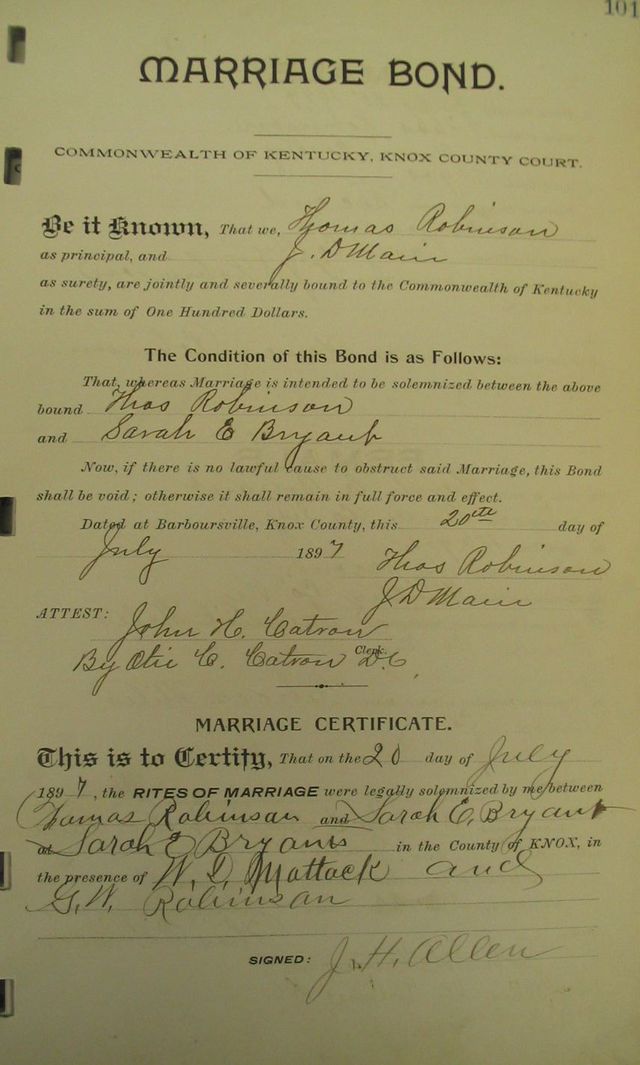 101
MARRIAGE BOND.
COMMONWEALTH OF KENTUCKY, KNOX COUNTY COURT.
Be it Known, That we, Thomas Robinson
as principal, and J. D Main
as surety, are jointly and severally bound to the Commonwealth of Kentucky
in the sum of One Hundred Dollars.
The Condition of this Bond is as Follows:
That, whereas Marriage is intended to be solemnized between the above
bound Thos Robinson
and Sarah E Bryant
Now, if there is no lawful cause to obstruct said Marriage, this Bond
shall be void; otherwise it shall remain in full force and effect.
Dated at Barboursville, Knox County, this 20th day of
July 1897 Thos Robinson
J D Main
ATTEST:
John H. Catron
By Otie C. Catron Clerk. D.C.
MARRIAGE CERTIFICATE.
This is to Certify, That on the 20 day of July
1897, the RITES OF MARRIAGE were legally solemnized by me between
Thomas Robinson and Sarah E. Bryant
at Sarah E Bryants in the County of KNOX, in
the presence of W. D. Mattack and
G. W. Robinson
SIGNED: J. H. Allen